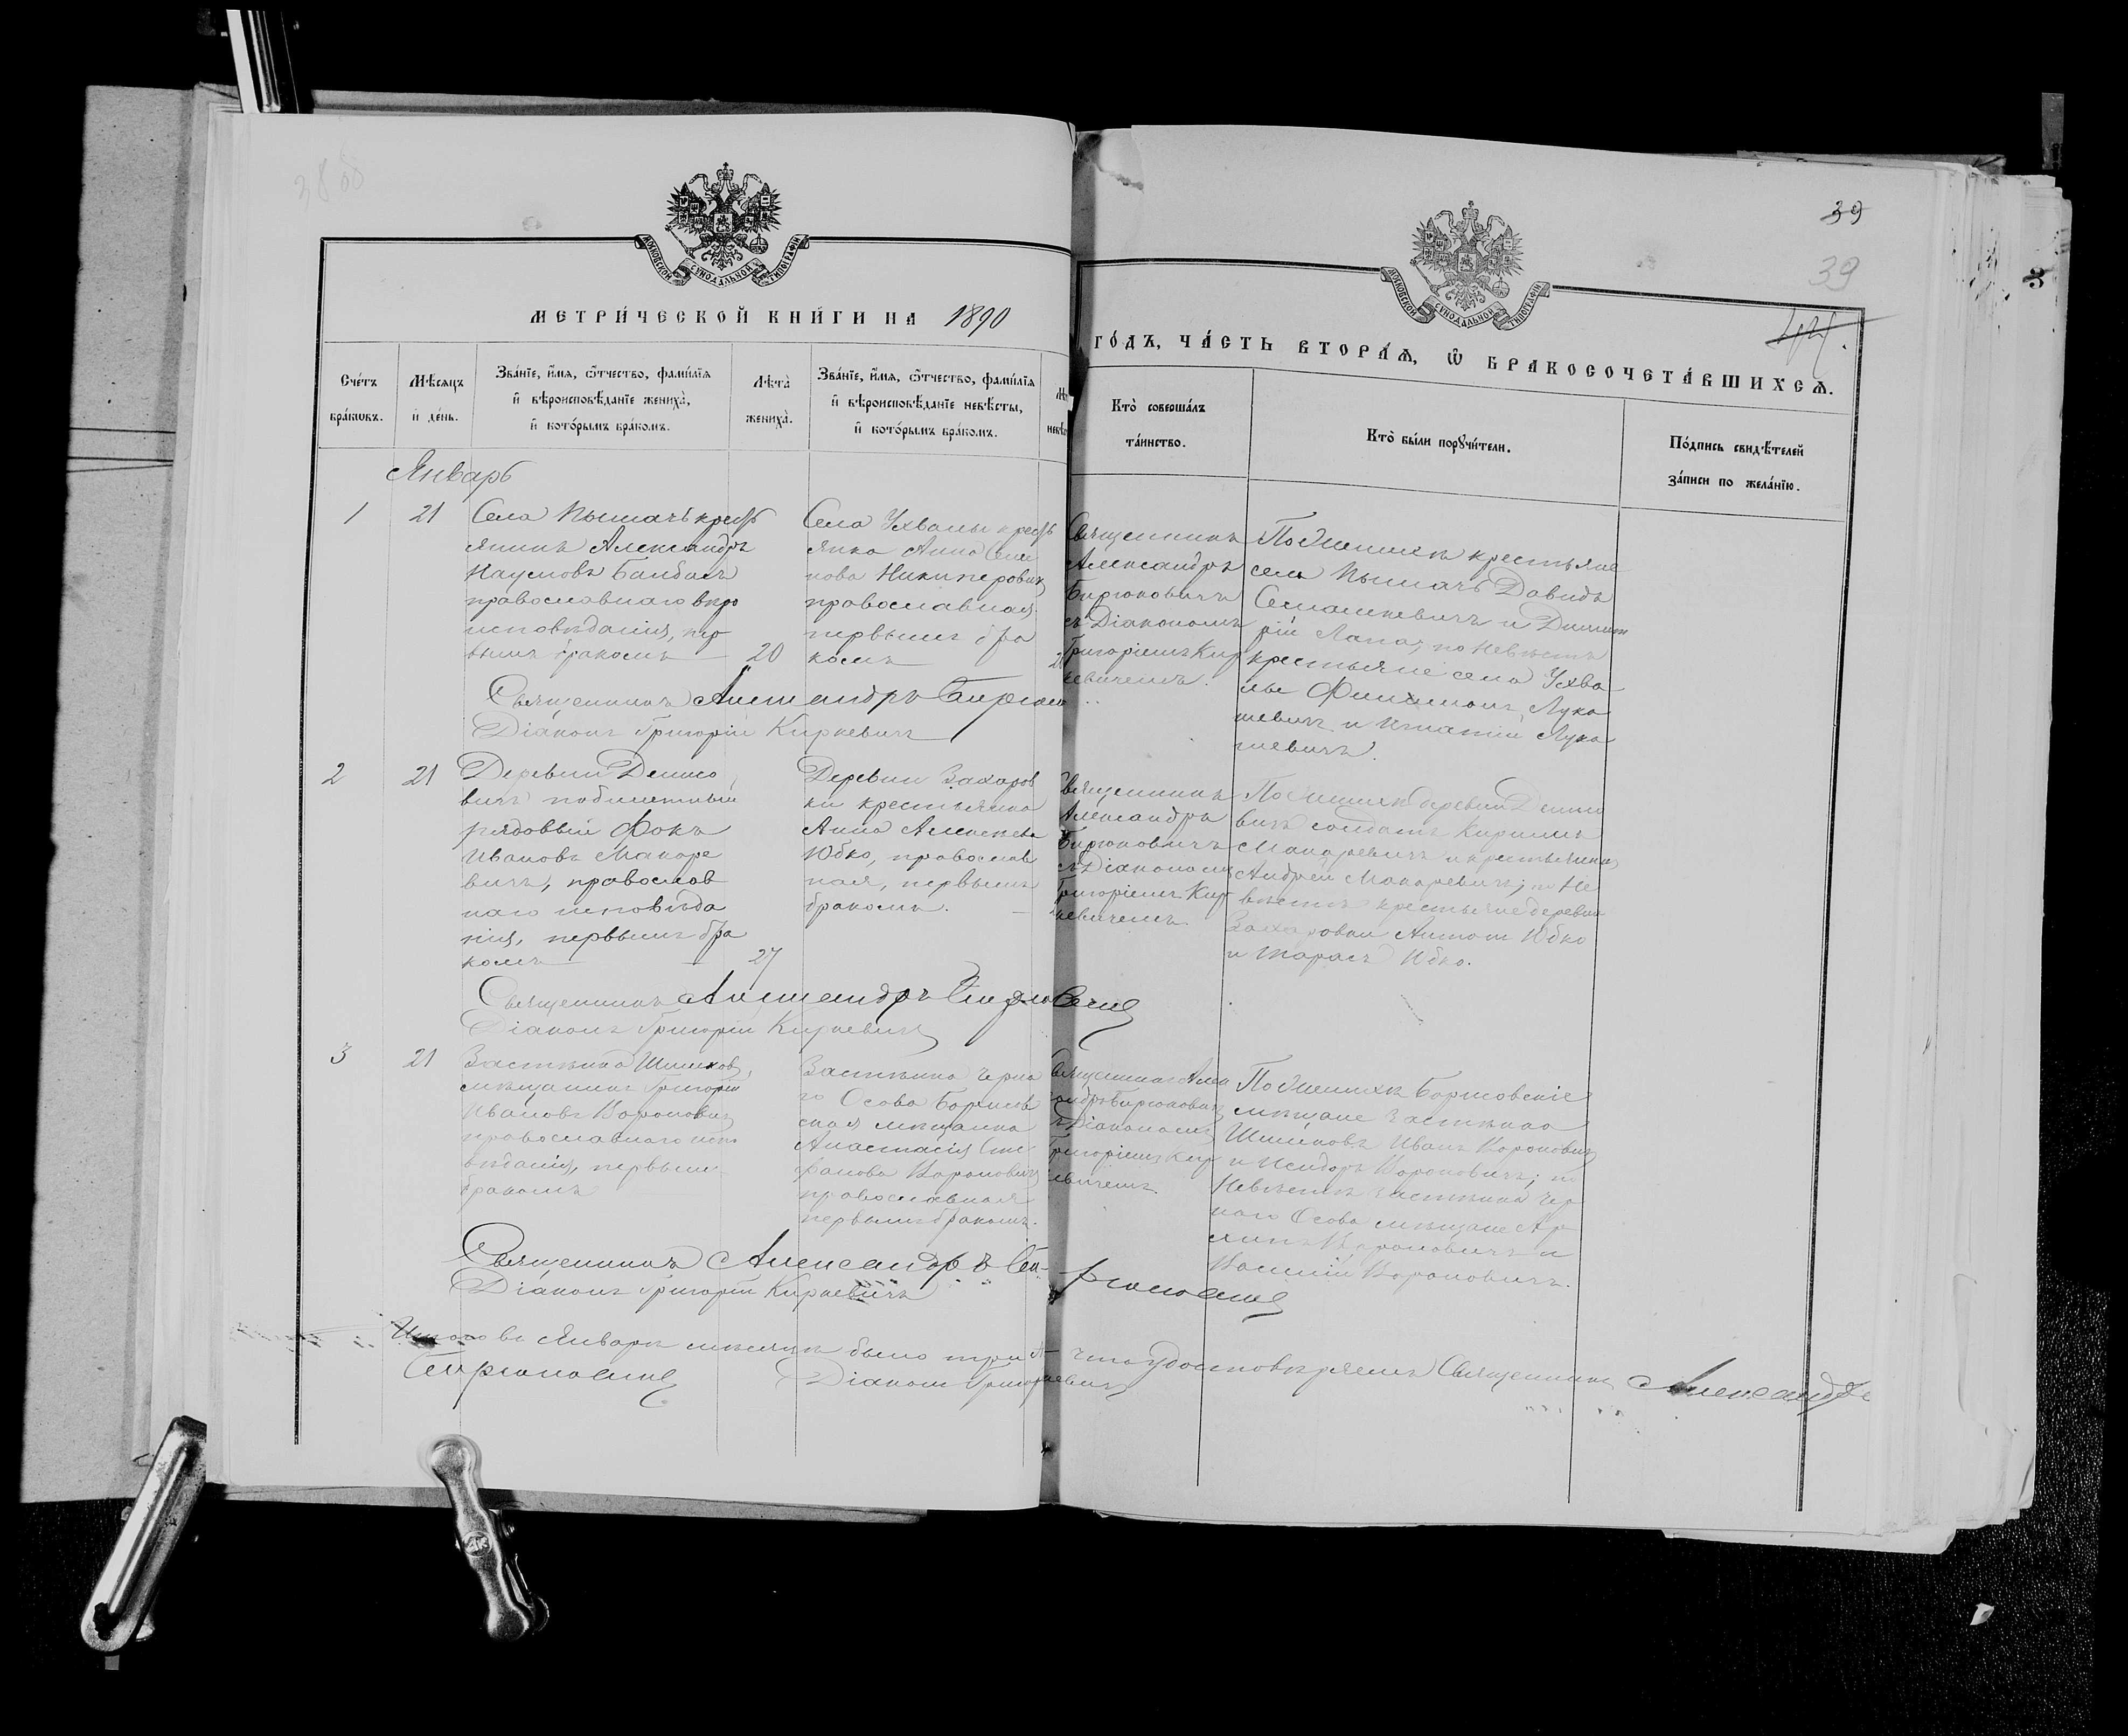 39
39
МОСКОВСКОЙ СѴНОДАЛЬНОЙ ТИПОГРАФІИ
МОСКОВСКОЙ СѴНОДАЛЬНОЙ ТИПОГРАФІИ
МЕТРИ́ЧЕСКОЙ КНИ́ГИ НА 1890
ГО́ДЪ, ЧА́СТЬ ВТОРА́Ѧ, Ѡ БРАКОСОЧЕТА́ВШИХСѦ.
Сче́тъ
бра́кѡвъ.
Мѣ́сѧцъ
и҆ де́нь.
Зва́нїе, и҆́мѧ, ѻ҆́тчество, фамѝлїѧ
и҆ вѣроисповѣ́данїе жениха̀,
и҆ кото́рымъ бра́комъ.
Лѣта̀
жениха̀.
Зва́нїе, и҆́мѧ, ѻ҆́тчество, фамѝлїѧ
и҆ вѣроисповѣ́данїе невѣ́сты,
и҆ кото́рымъ бра́комъ.
Кто̀ соверша́лъ
та́инство.
Кто̀ бы́ли порꙋчи́тели.
По́дпись свидѣ́телей
за́писи по жела́нїю.
Январь
1
21
Села Пышачь кресть
янинъ Александръ
Наумовъ
православнаго вѣро
исповѣданія, пер
вымъ бракомъ
20
Села Ухвалы кресть
янка Анна Семе
нова Никиперовичъ
православная
первымъ бра
комъ
Священникъ
Александръ
Бирюковичъ
съ Діакономъ
Григоріемъ Кир
кевичемъ.
По Женихѣ крестьяне
села Пышачь Давидъ
Семашкевичъ и Димит
рій Лапа; по Невѣстѣ
крестьяне села Ухва
лы Филимонъ Лука
шевичъ и Игнатій Лука
шевичъ.
Священникъ Александръ
Діаконъ Григорій Киркевичъ
2
21
Деревни Денисо
вичъ побилетный
рядовый Фока
Ивановъ Макаре
вичъ, православ
наго исповѣда
нія, первымъ бра
комъ
27
Деревни Захаров
ки крестьянка
Анна Алексѣева
Юбко, православ
ная, первымъ
бракомъ.
Священникъ
Александръ
Бирюковичъ
съ Діакономъ
Григоріемъ Кир
кевичемъ
По Женихѣ деревни Денисо
вичъ солдатъ Кириллъ
Макаревичъ и крестьянинъ
Андрей Макаревичъ; по Не
вѣстѣ крестьяне деревни
Захаровки Антонъ Юбко
и Тарасъ Юбко.
Священникъ Александръ Бирюковичъ
Діаконъ Григорій Киркевичъ
3
21
Застѣнка Шишковъ
мѣщанинъ Григорій
Ивановъ Вороновичъ
православнаго испо
вѣданія, первымъ
бракомъ
Застѣнка Черна
го Осова Борисов
ская мѣщанка
Анастасія Сте
фанова Вороновичъ
православная
первымъ бракомъ.
Григоріемъ Кир
кевичемъ.
По Женихѣ Борисовскіе
мѣщане застѣнка
Шишковъ Иванъ Вороновичъ
и Исидоръ Вороновичъ; по
Невѣстѣ застѣнка Чер
наго Осова мѣщане
Вороновичъ и
Василій Вороновичъ.
Священникъ Александръ Би-
рюковичъ
Діаконъ Григорій Киркевичъ
Итого въ Январѣ мѣсяцѣ было три что удостовѣряемъ Священникъ Александръ
Бирюковичъ
Діаконъ